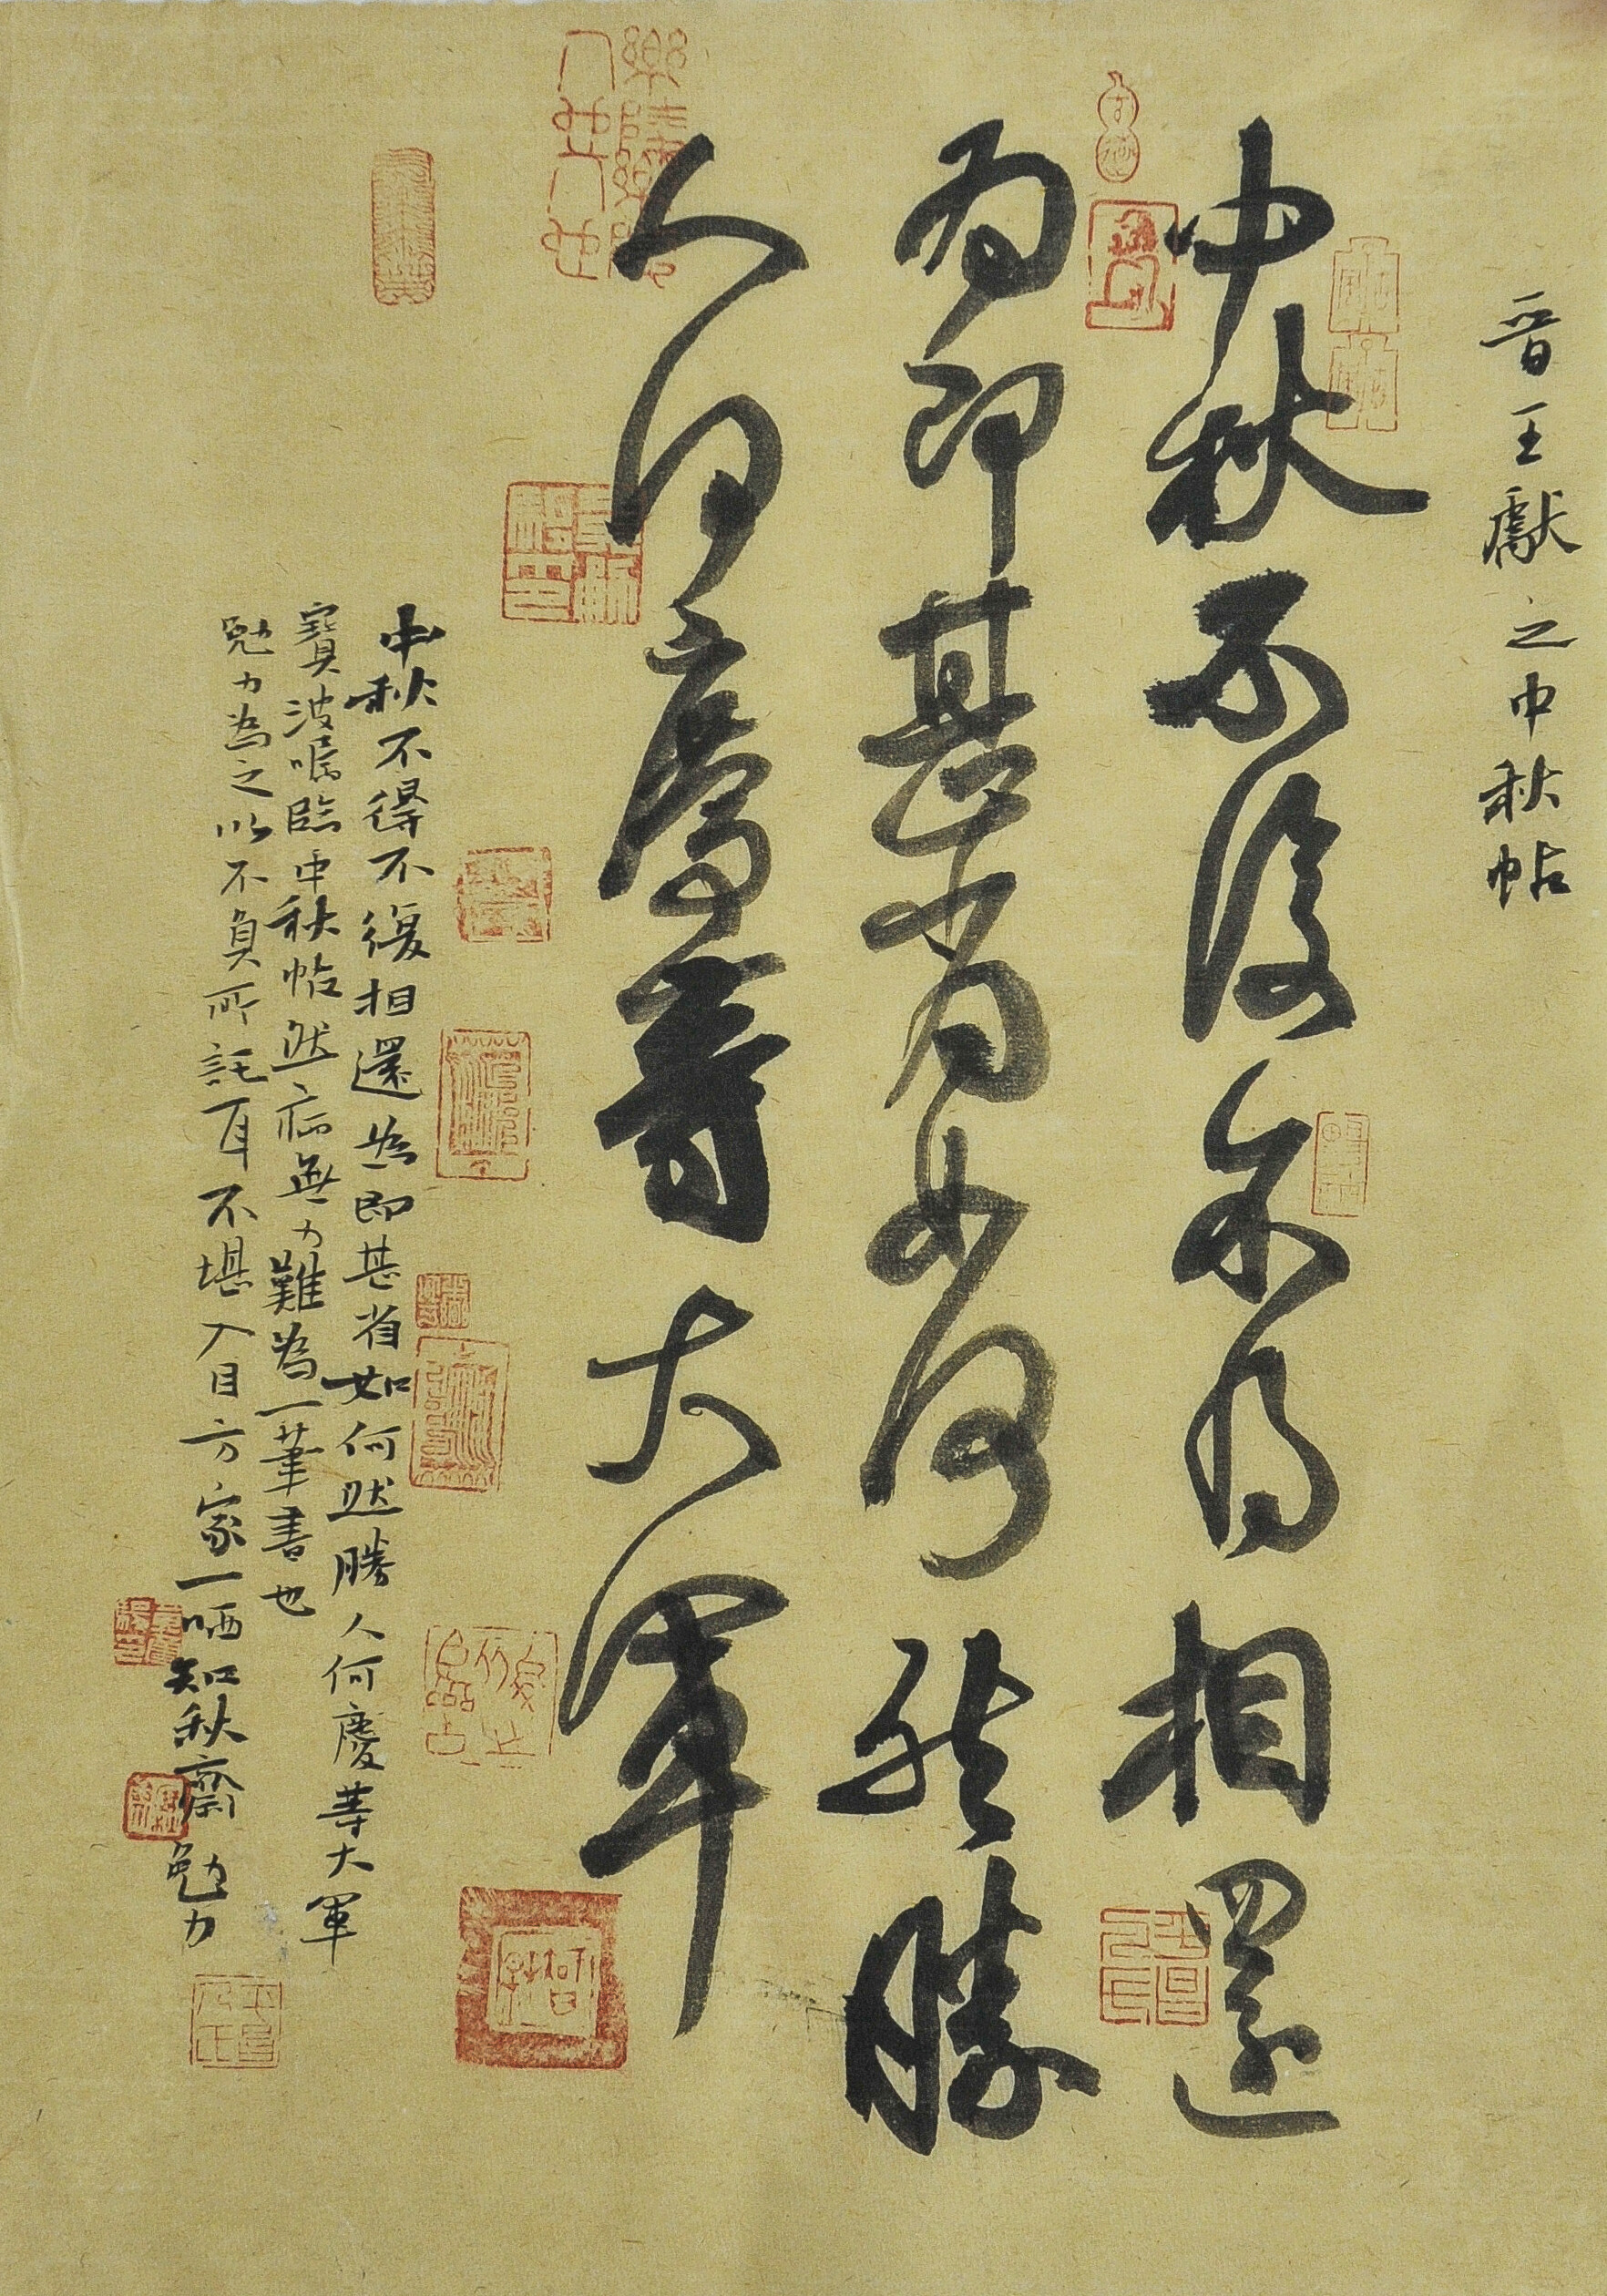 晉王獻之中秋帖
中秋不復不得相還
為即甚省如何然勝
人何慶等大軍
中秋不得不復相還為即甚省如何然勝人何慶等大軍
寶波囑臨中秋帖然病無力難為一筆書也
勉力為之以不負所託耳不堪入目方家一哂知秋齋勉力